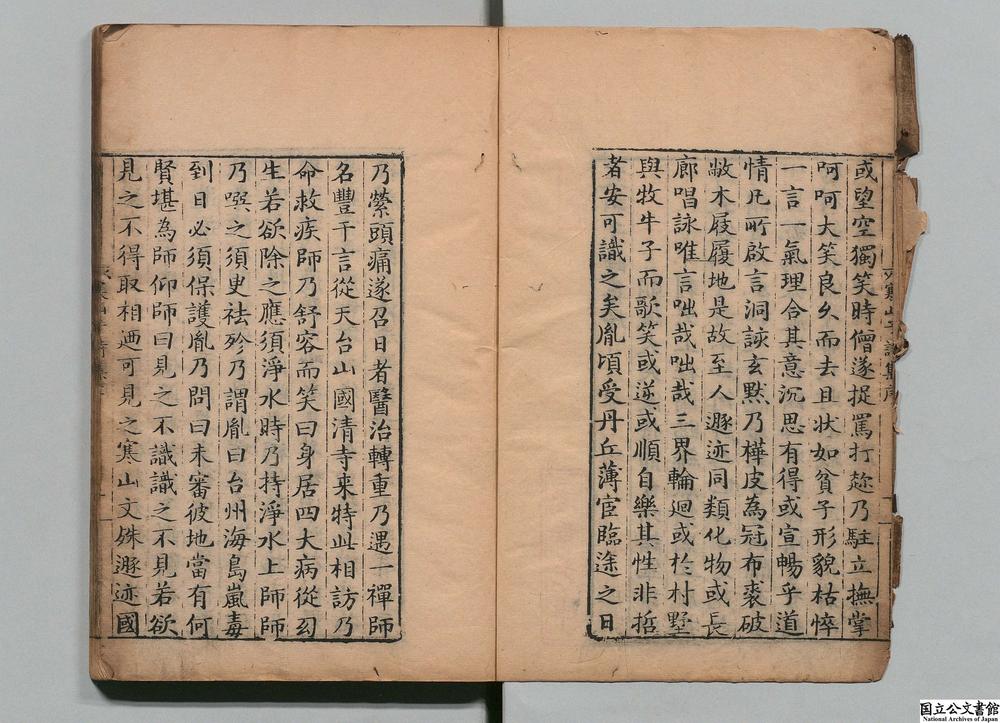 或望空獨笑時僧遂捉罵打趂乃駐立撫掌
呵呵大笑良久而去且状如貧子形貌枯悴
一言一氣理合其意沉思有得或宣暢乎道
情凡所啟言洞該玄默乃樺皮為冠布裘破
敝木屐履地是故至人遯迹同類化物或長
廊唱詠唯言咄哉咄哉三界輪迴或於村墅
與牧牛子而歌笑或逆或順自樂其性非哲
者安可識之矣胤頃受丹丘薄宦臨途之日
乃縈頭痛遂召日者醫治轉重乃遇一禪師
名豐干言從天台山國清寺来特此相訪乃
命救疾師乃舒容而笑曰身居四大病從幻
生若欲除之應須淨水時乃持淨水上師師
乃噀之須臾祛殄乃謂胤曰台州海島嵐毒
到日必須保護胤乃問曰未審彼地當有何
賢堪為師仰師曰見之不識識之不見若欲
見之不得取相廼可見之寒山文殊遯迹國
国立公文書館
National Archives of Japan